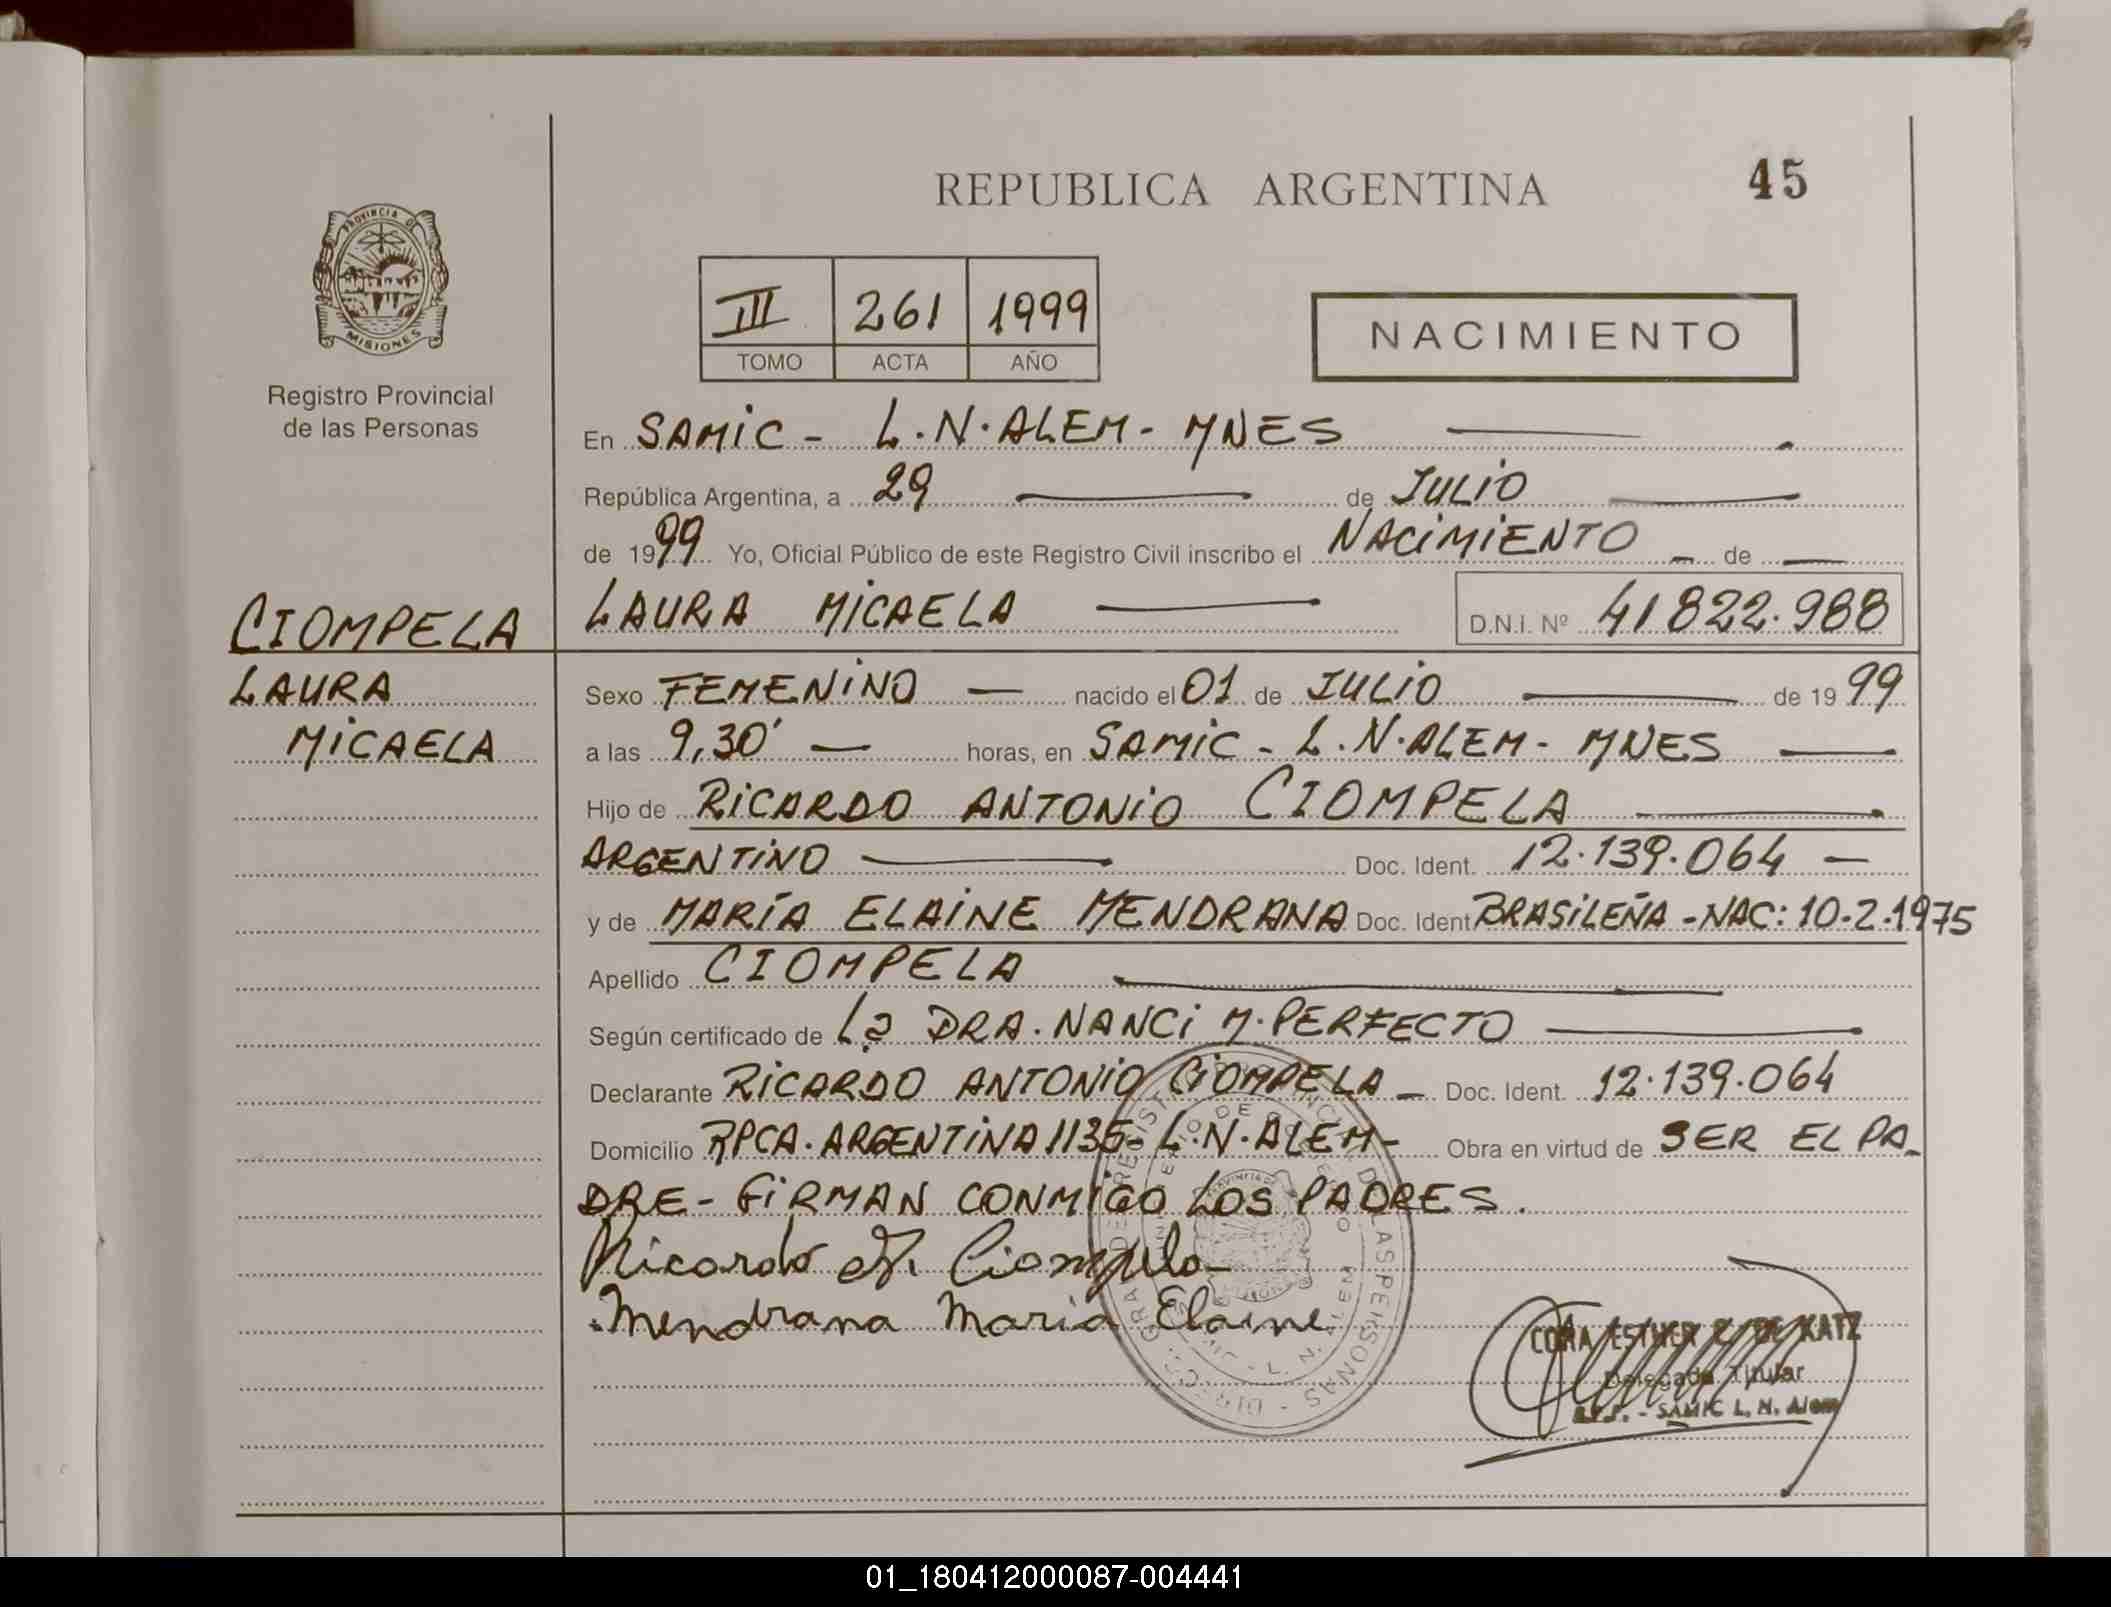 REPUBLICA ARGENTINA
45
PROVINCIA DE
MISIONES
Registro Provincial
de las Personas
III 261 1999
TOMO ACTA AÑO
NACIMIENTO
En SAMIC - L.N. ALEM - MNES
República Argentina, a 29 de JULIO
de 1999 Yo, Oficial Público de este Registro Civil inscribo el NACIMIENTO de
LAURA MICAELA D.N.I. Nº 41822.988
CIOMPELA
LAURA
MICAELA
Sexo FEMENINO nacido el 01 de JULIO de 1999
a las 9,30' horas, en SAMIC - L.N. ALEM - MNES
Hijo de RICARDO ANTONIO CIOMPELA
ARGENTINO Doc. Ident. 12.139.064
y de MARÍA ELAINE MENDRANA Doc. Ident BRASILEÑA - NAC: 10-2-1975
Apellido CIOMPELA
Según certificado de La DRA. NANCI M. PERFECTO
Declarante RICARDO ANTONIO CIOMPELA Doc. Ident. 12.139.064
Domicilio RPCA. ARGENTINA 1135 - L.N. ALEM - Obra en virtud de SER EL PA-
DRE - FIRMAN CONMIGO LOS PADRES.
Ricardo A. Ciompela
Mendrana Maria Elaine
CORA ESTHER R. DE KATZ
Delegada Titular
SAMIC L. N. Alem
01_180412000087-004441